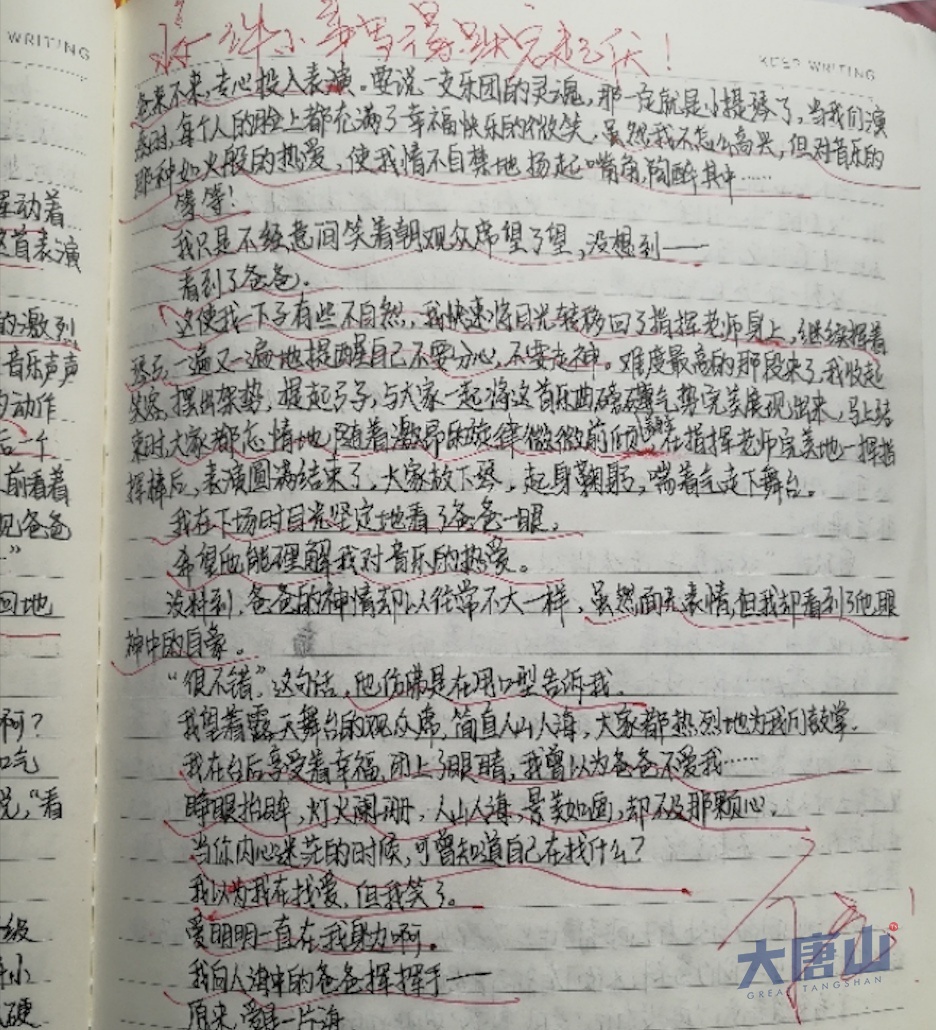 WRITING
KEEP WRITING
将一件小事写得跌宕起伏！
爸来不来，专心投入表演。要说一支乐团的灵魂，那一定就是小提琴了，当我们演
奏时，每个人的脸上都充满了幸福快乐的微笑，虽然我不怎么高兴，但对音乐的
那种如火般的热爱，使我情不自禁地扬起嘴角，陶醉其中……
等等！
我只是不经意间笑着朝观众席望了望，没想到——
看到了爸爸。
这使我一下子有些不自然，我快速将目光转移回了指挥老师身上，继续挥着
琴弓，一遍又一遍地提醒自己不要分心，不要走神。难度最高的那段来了，我收起
笑容，摆出架势，提起弓子，与大家一起将这首乐曲磅礴气势完美展现出来，马上结
束时，大家都忘情地随着激昂乐旋律微微前倾，在指挥老师完美地一挥指
挥棒后，表演圆满结束了，大家放下琴，起身鞠躬，喘着气走下舞台。
我在下场时目光坚定地看了爸爸一眼，
希望他能理解我对音乐的热爱。
没料到，爸爸的神情却以往常不大一样，虽然面无表情，但我却看到了他眼
神中的自豪。
“很不错”，这句话，他仿佛是在用口型告诉我。
我望着露天舞台的观众席，简直人山人海，大家都热烈地为我们鼓掌。
我在台后享受着幸福，闭上了眼睛，我曾以为爸爸不爱我……
睁眼抬眸，灯火阑珊，人山人海，景美如画，却不及那颗心。
当你内心迷茫的时候，可曾知道自己在找什么？
我以为我在找爱，但我笑了。
爱明明一直在我身边啊。
我向人海中的爸爸挥挥手——
原来，爱是一片海
动着
这首表演
的激烈
音乐声声
动作
后一个
前看着
见爸爸
”
回地
啊？
口气
说，“看
级
小
硬
大唐山
GREAT TANGSHAN